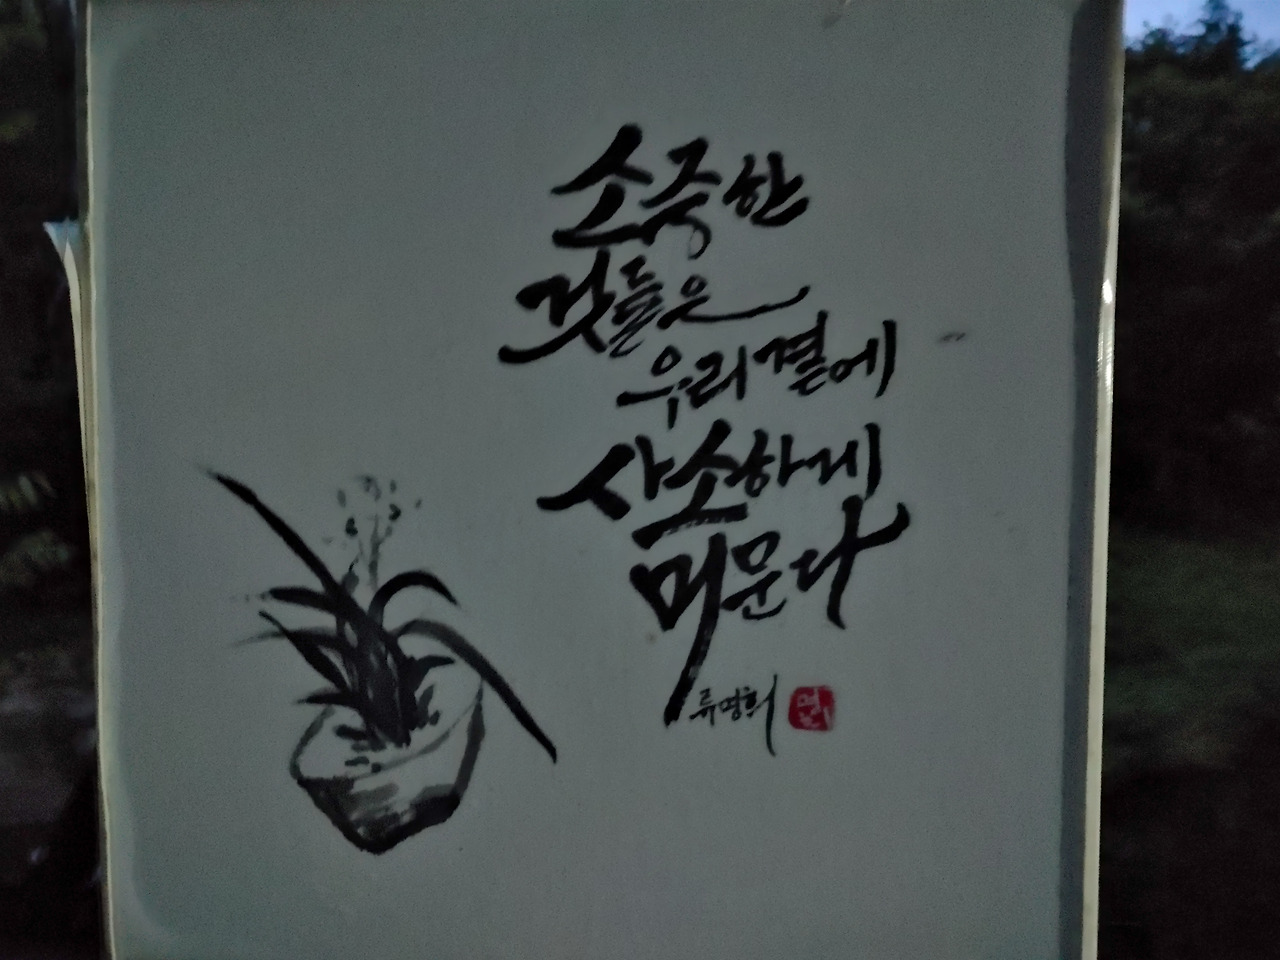 소중한
것들은
우리 곁에
사소하게
머문다
류명희